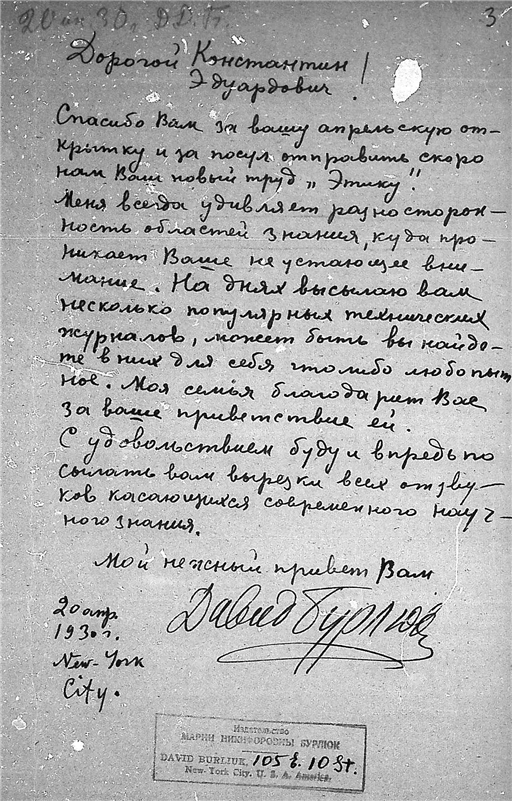 3
Дорогой Константин
Эдуардович!
Спасибо Вам за вашу апрельскую от-
крытку и за посул отправить скоро
нам Ваш новый труд „Этику"!
Меня всегда удивляет разносторон-
ность областей знания, куда про-
никает Ваше не устающее вни-
мание. На днях высылаю вам
несколько популярных технических
журналов, может быть вы найде-
те в них для себя что либо любопыт
ное. Моя семья благодарит Вас
за ваше приветствие ей.
С удовольствием буду и впредь по
сылать вам вырезки всех отзву-
ков касающихся современного науч-
ного знания.
Мой нежный привет Вам
Давид Бурлюк
20 апр.
1930 г.
New-York
City.
Издательство
МАРИИ НИКИФОРОВНЫ БУРЛЮК
DAVID BURLIUK, 105 E. 10 St.
New York City. U. S. A. America.